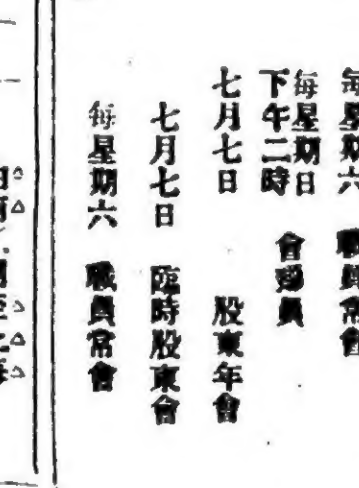 每星期六 職員常會
每星期日
下午二時 會務員
七月七日 股東年會
七月七日 臨時股東會
每星期六 職員常會